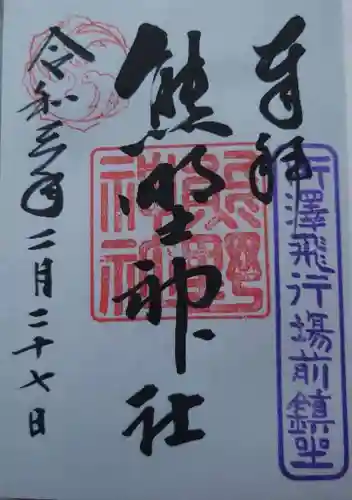 奉拝
所澤飛行場前鎮坐
熊野神社
熊野神社
令和三年二月二十七日